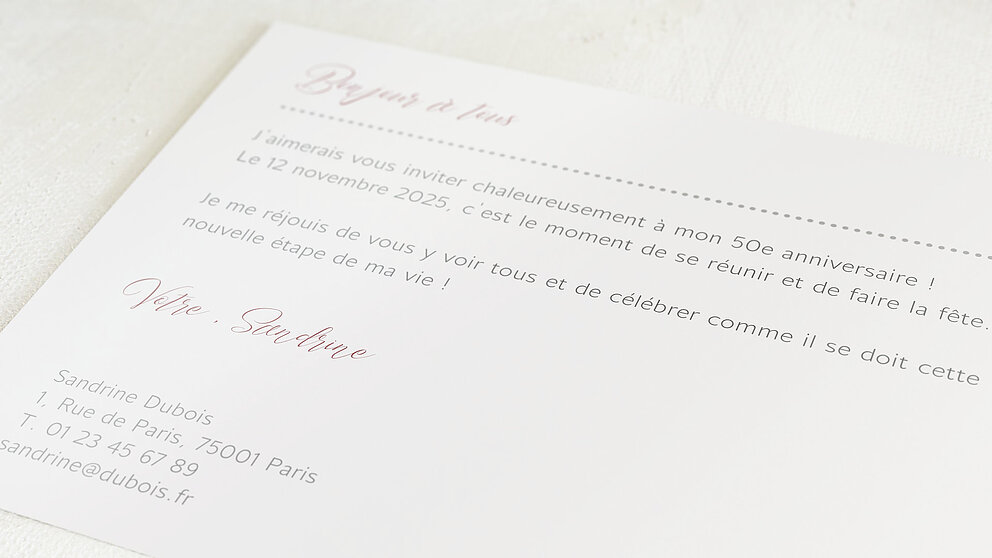 Bonjour à tous
J'aimerais vous inviter chaleureusement à mon 50e anniversaire !
Le 12 novembre 2025, c'est le moment de se réunir et de faire la fête.
Je me réjouis de vous y voir tous et de célébrer comme il se doit cette
nouvelle étape de ma vie !
Votre , Sandrine
Sandrine Dubois
1, Rue de Paris, 75001 Paris
T. 01 23 45 67 89
sandrine@dubois.fr